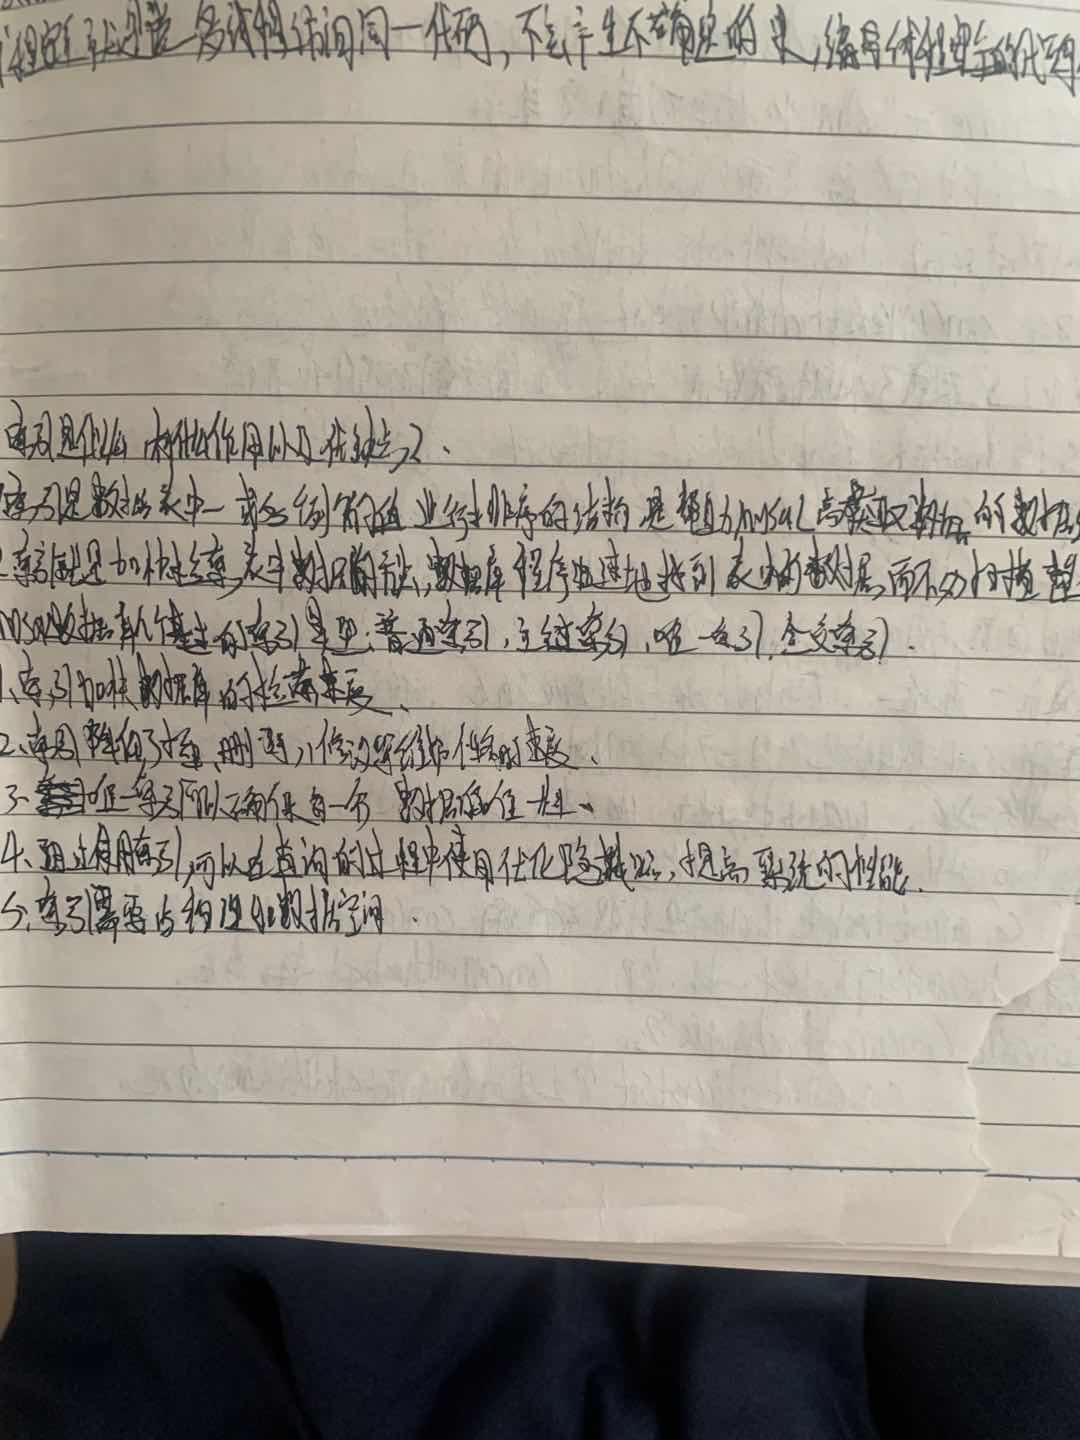 线程安全就是说多线程访问同一代码，不会产生不确定的结果，编写线程安全的代码
索引是什么 有什么作用以及优缺点？
索引是数据表中一或多列的值进行排序的结构 是帮助MySQL高效获取数据的数据
索引就是加快检索表中数据的方法，数据库程序迅速地找到表中的数据，而不必扫描整
MySQL数据库几个基本的索引类型：普通索引，主键索引，唯一索引，全文索引．
1、索引加快数据库的检索速度、
2、索引降低了插入、删除、修改等维护任务的速度、
3、唯一索引可以确保每一行数据的唯一性、
4、通过使用索引，可以在查询的过程中使用优化隐藏器，提高系统的性能．
5、索引需要占物理和数据空间．